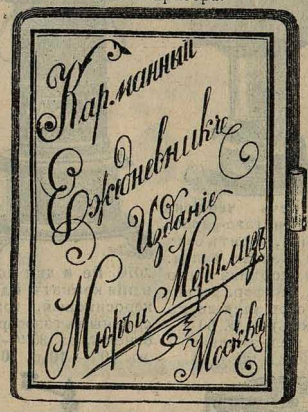 Карманный
Ежедневникъ
Изданіе
Мюръ и Мерилизъ
Москва